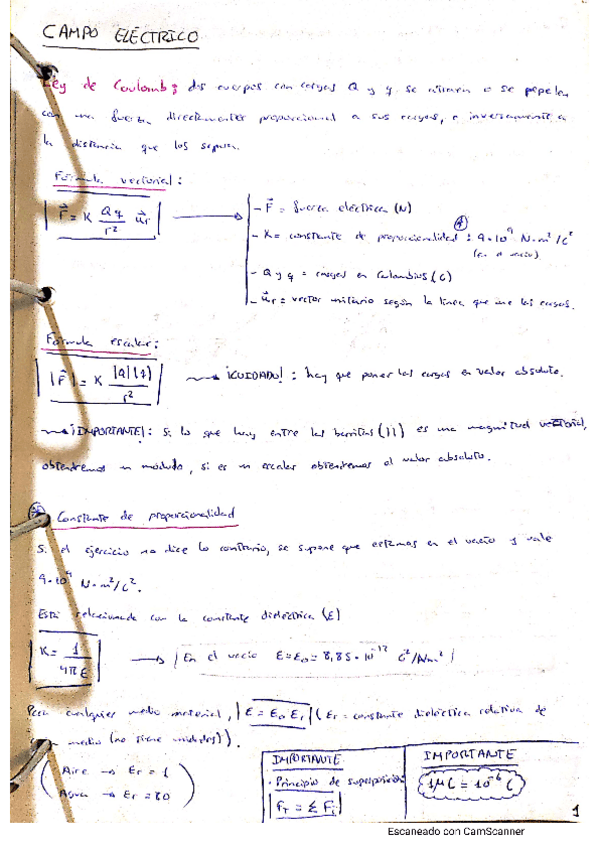 CAMPO ELÉCTRICO
Ley de Coulomb: dos cuerpos con cargas Q y q se atraen o se repelen
con una fuerza directamente proporcional a sus cargas, e inversamente a
la distancia que los separa.
Fórmula vectorial:
F⃗ = K Qq/r² u⃗r
- F⃗ = fuerza eléctrica (N)
- K = constante de proporcionalidad : 9·10⁹ N·m²/C²
(en el vacío)
- Q y q = cargas en culombios (C)
- u⃗r = vector unitario según la línea que une las cargas.
Fórmula escalar:
|F⃗| = K |Q||q|/r²
¡CUIDADO! : hay que poner las cargas en valor absoluto.
¡IMPORTANTE!: Si lo que hay entre las barritas (||) es una magnitud vectorial,
obtendremos un módulo, si es un escalar obtendremos el valor absoluto.
Constante de proporcionalidad
Si el ejercicio no dice lo contrario, se supone que estamos en el vacío y vale
9·10⁹ N·m²/C².
Está relacionada con la constante dieléctrica (ε)
K = 1/4πε
En el vacío ε=ε₀= 8,85·10⁻¹² C²/Nm²
Para cualquier medio material, |ε = ε₀ εr| (εr = constante dieléctrica relativa de
medio (no tiene unidades)).
(Aire → εr = 1
Agua → εr = 80)
IMPORTANTE
· Principio de superposición
F_T = Σ Fi
IMPORTANTE
1μC = 10⁻⁶ C
1
Escaneado con CamScanner